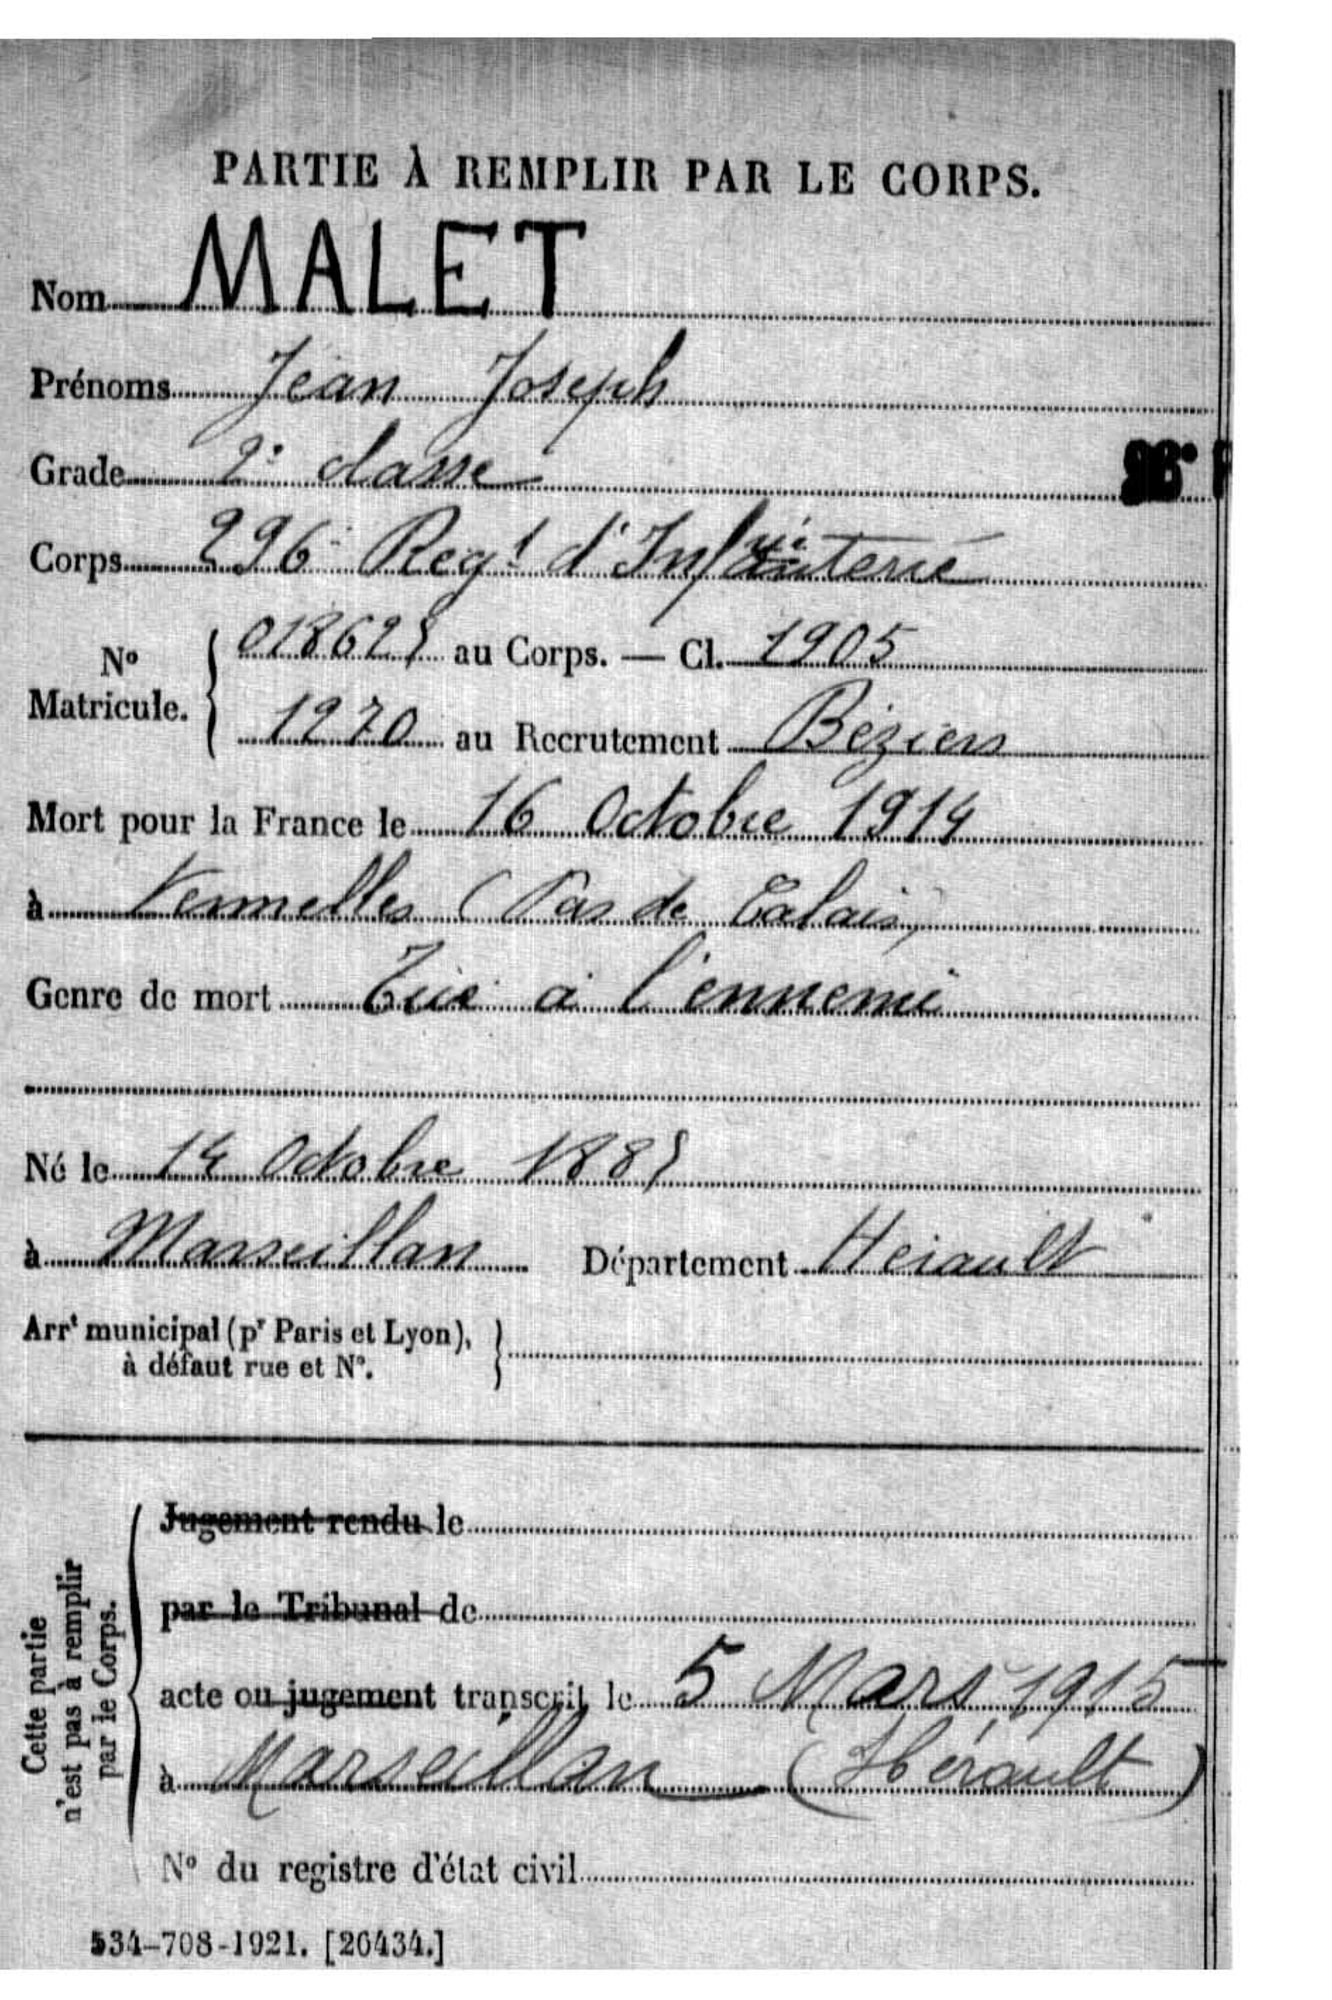 PARTIE À REMPLIR PAR LE CORPS.
Nom MALET
Prénoms Jean Joseph
Grade 2e classe
96e
Corps 296 Regt d'Infanterie
No Matricule. 018625 au Corps. — Cl. 1905
1270 au Recrutement Béziers
Mort pour la France le 16 Octobre 1914
à Vermelles (Pas de Calais)
Genre de mort Tué à l'ennemi
Né le 14 Octobre 1885
à Marseillan Département Hérault
Arrt municipal (pr Paris et Lyon),
à défaut rue et No.
Cette partie
n'est pas à remplir
par le Corps.
Jugement rendu le
par le Tribunal de
acte ou jugement transcrit le 5 Mars 1915
à Marseillan (Hérault)
No du registre d'état civil
534-708-1921. [26434.]